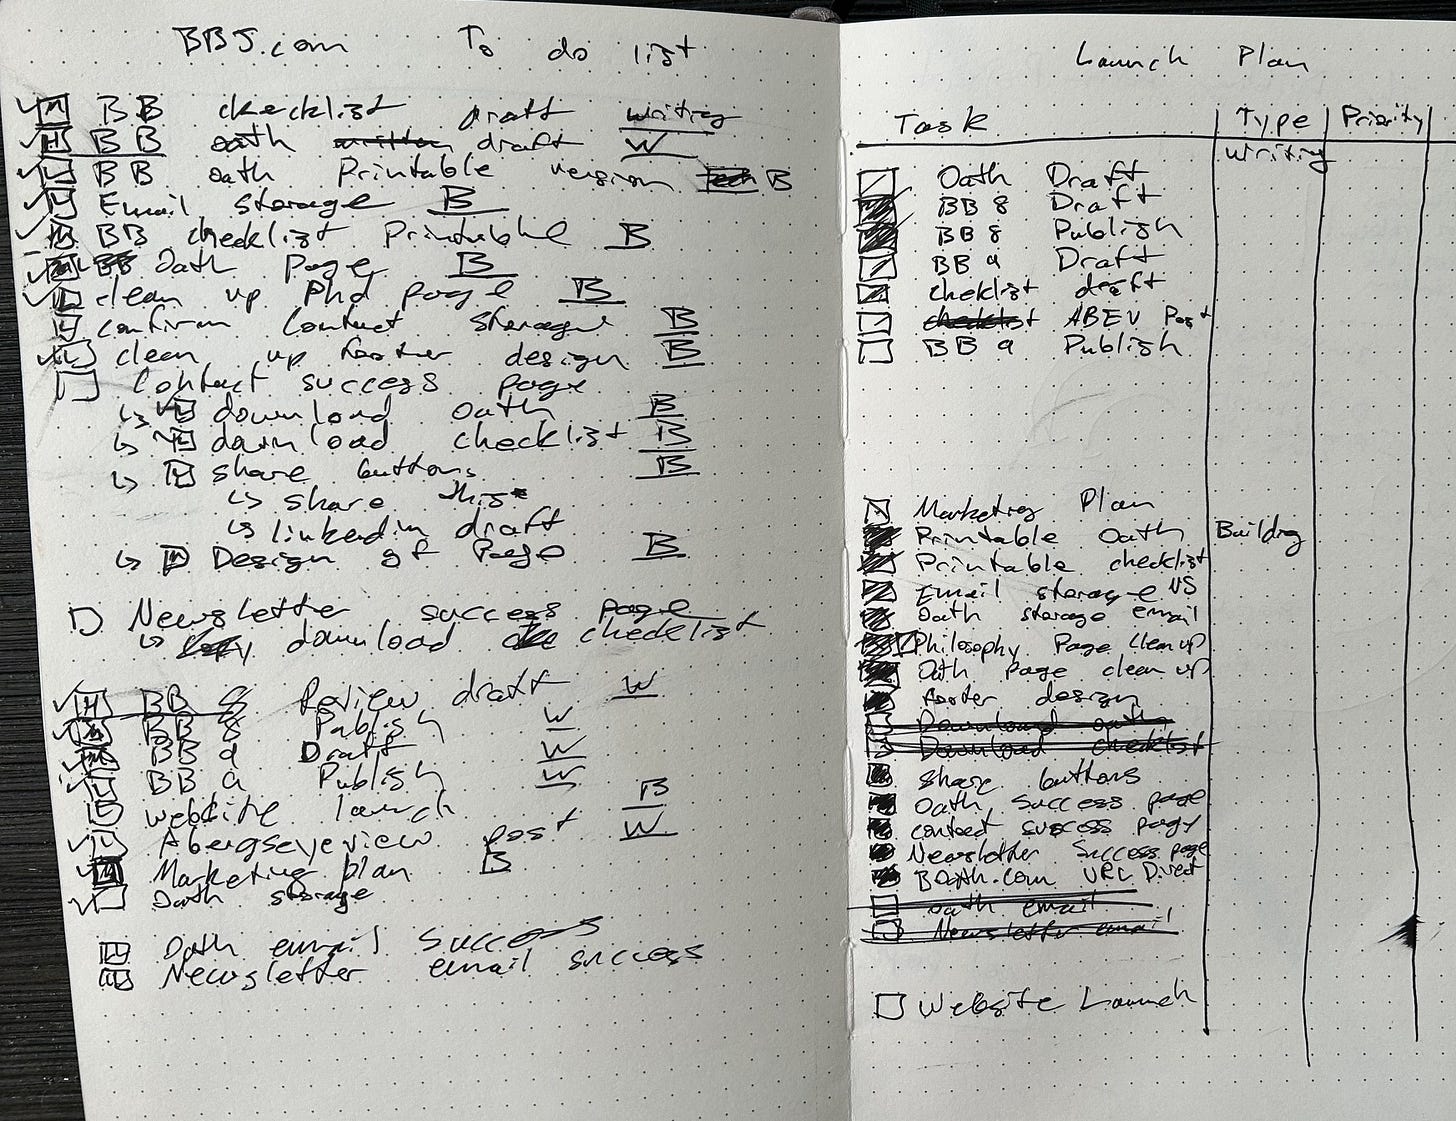 BBJ.com To do list
BB checklist draft writing
BB oath written draft W
BB oath Printable version B
Email storage B
BB checklist Printable B
BB Oath Page B
clean up Phd page B
confirm contact storage B
clean up footer design B
Contact success page
↳ download oath B
↳ download checklist B
↳ share buttons B
↳ share this
↳ linkedin draft
↳ Design of Page B
Newsletter success page
↳ download checklist
BB 8 Review draft W
BB 8 Publish W
BB 9 Draft W
BB 9 Publish W
website launch B
Abergseyeview post W
Marketing plan B
Oath storage
Oath email success
Newsletter email success
Launch Plan
Task Type Priority
Writing
Oath Draft
BB 8 Draft
BB 8 Publish
BB 9 Draft
cheklist draft
checklist ABEV Post
BB 9 Publish
Marketing Plan
Printable Oath Building
Printable checklist
Email storage VS
Oath storage email
Philosophy Page clean up
Oath Page clean up
footer design
Download oath
Download checklist
Share buttons
Oath Success page
contact success page
Newsletter Success page
BOath.com URL Direct
oath email
Newsletter email
Website Launch